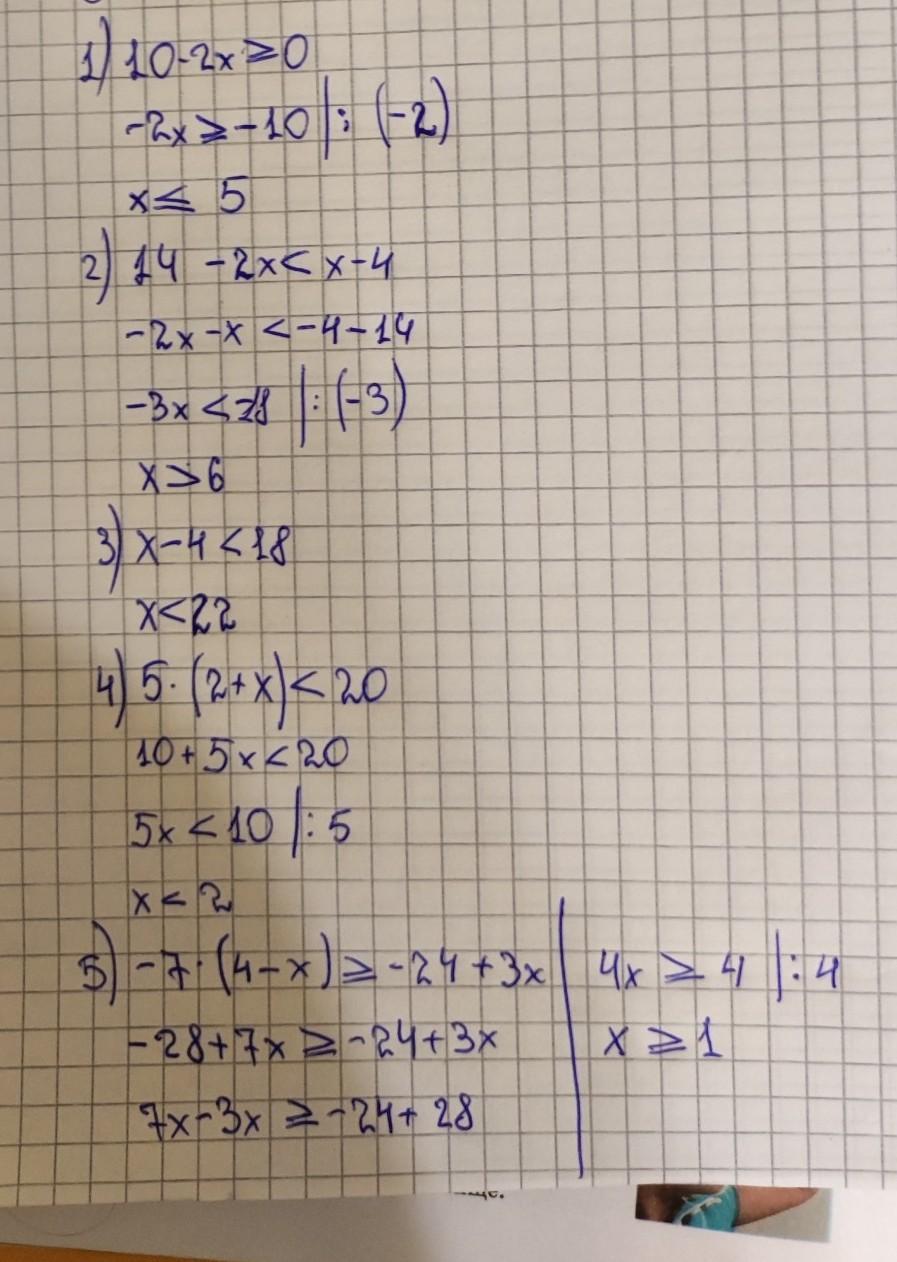 1) 10-2x ≥ 0
-2x ≥ -10 |: (-2)
x ≤ 5
2) 14 -2x < x-4
-2x -x < -4-14
-3x < -18 |: (-3)
x > 6
3) x-4 < 18
x < 22
4) 5·(2+x) < 20
10+5x < 20
5x < 10 |: 5
x < 2
5) -7·(4-x) ≥ -24+3x
-28+7x ≥ -24+3x
7x-3x ≥ -24+28
4x ≥ 4 |: 4
x ≥ 1